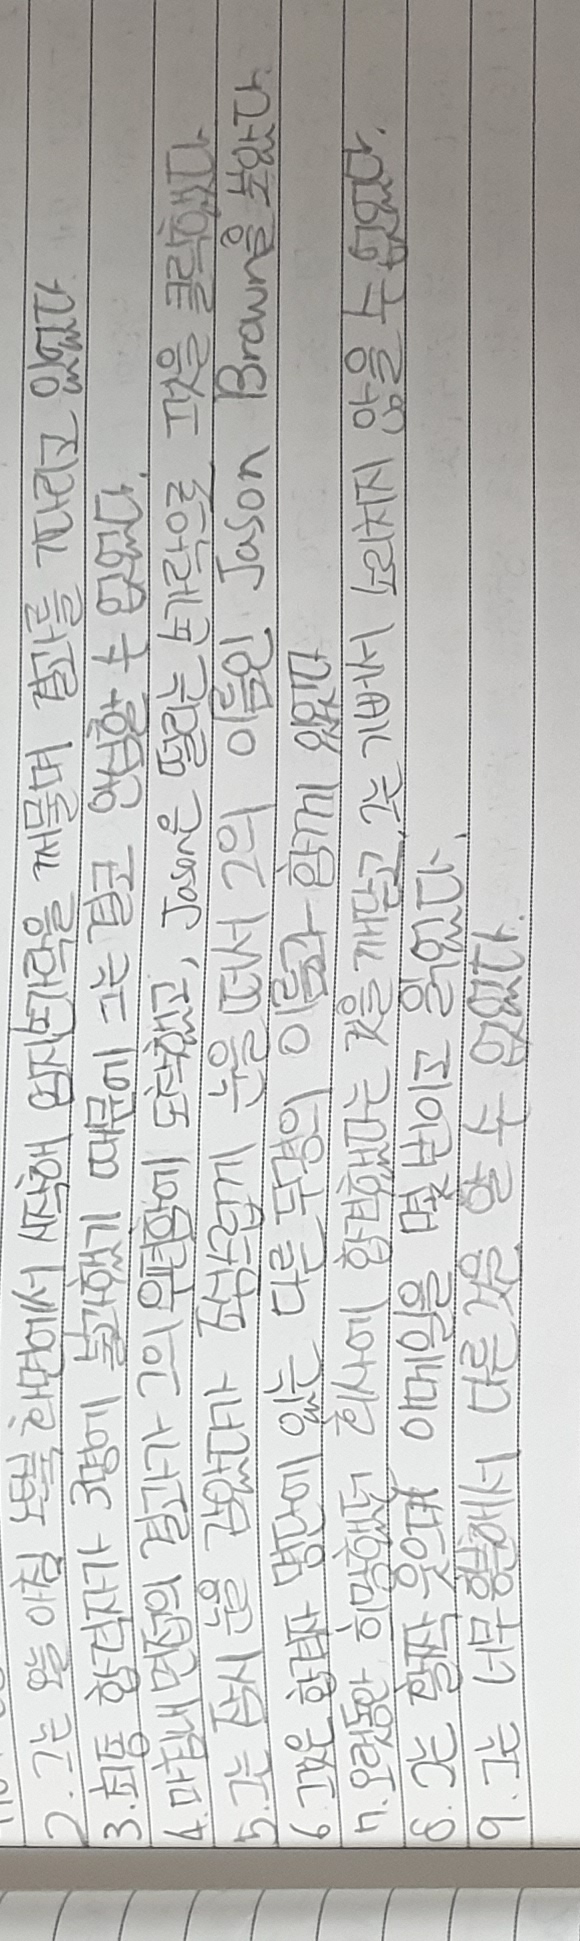 2. 그는 오늘 아침 노트북 화면에서 시작해 엄지손가락을 깨물며 결과를 기다리고 있었다
3. 최종 합격자가 3명에 불과했기 때문에 그는 결코 안심할 수 없었다.
4. 마침내 면접의 결과가 그의 우편함에 도착했고, Jason은 떨리는 손가락으로 그것을 클릭했다
5. 그는 잠시 눈을 감았다가 조심스럽게 눈을 떠서 그의 이름인 Jason Brown을 보았다.
6 그것은 합격자 명단에 있는 다른 두명의 이름과 함께 있었다
7. 오랫동안 희망했던 회사에 합격했다는 것을 깨닫고, 그는 기뻐서 소리치지 않을 수 없었다.
8. 그는 활짝 웃으며 이메일을 몇 번이고 읽었다.
9. 그는 너무 흥분해서 다른 것을 할 수 없었다.